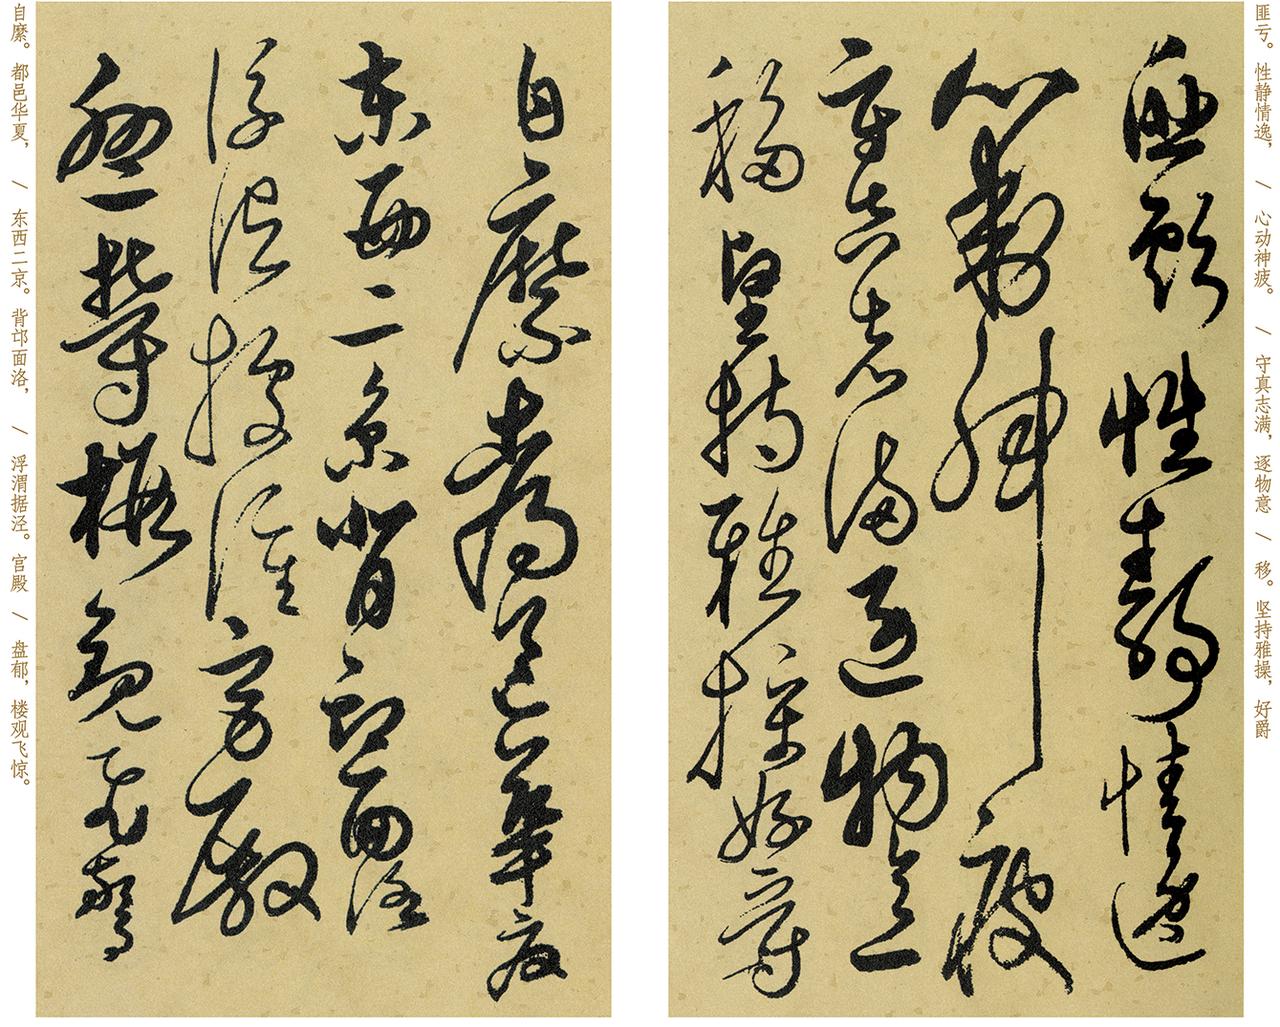 匪亏。性静情逸， / 心动神疲。 / 守真志满，逐物意 / 移。坚持雅操，好爵
匪虧性靜情逸
心動神疲
守真志滿逐物意
移堅持雅操好爵
自縻都邑華夏
東西二京背邙面洛
浮渭據涇宮殿
盤鬱樓觀飛驚
自縻。都邑华夏， / 东西二京。背邙面洛， / 浮渭据泾。宫殿 / 盘郁，楼观飞惊。